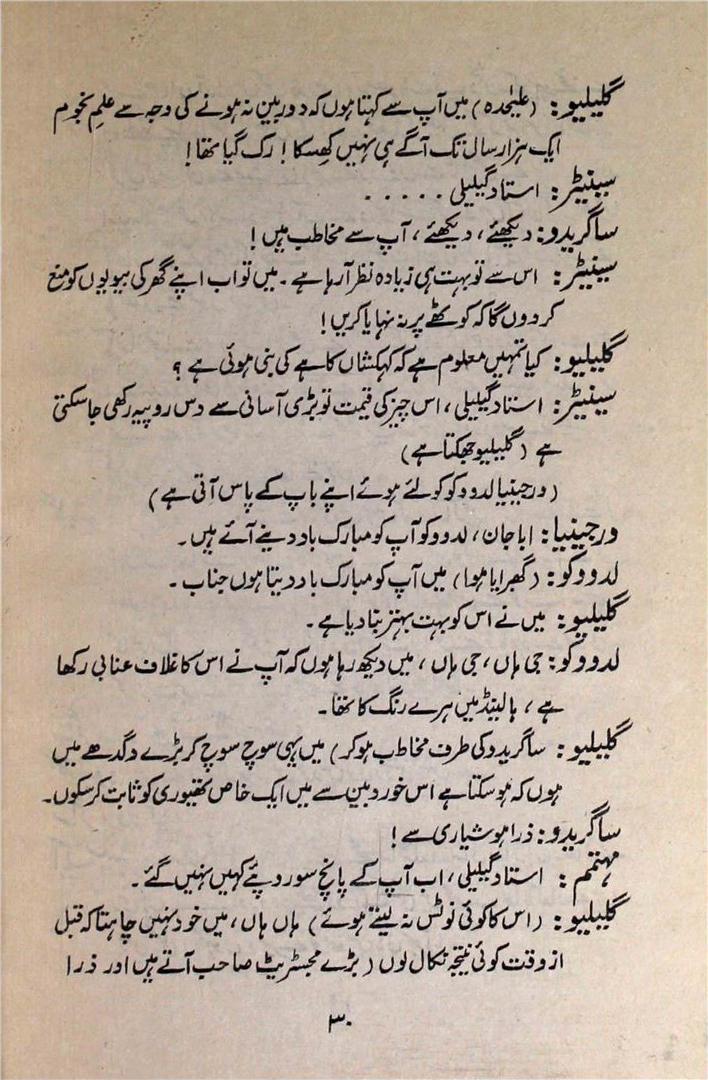 گلیلیو: (علیحدہ) میں آپ سے کہتا ہوں کہ دوربین نہ ہونے کی وجہ سے علمِ نجوم
ایک ہزار سال تک آگے ہی نہیں کھسکا! رک گیا تھا!
سینیٹر: استاد گیلیلی . . . . .
ساگریدو: دیکھئے، دیکھئے، آپ سے مخاطب ہیں!
سینیٹر: اس سے تو بہت ہی زیادہ نظر آ رہا ہے ۔ میں تو اب اپنے گھر کی بیویوں کو منع
کر دوں گا کہ کوٹھے پر نہ نہایا کریں!
گلیلیو: کیا تمہیں معلوم ہے کہ کہکشاں کاہے کی بنی ہوئی ہے ؟
سینیٹر: استاد گیلیلی، اس چیز کی قیمت تو بڑی آسانی سے دس روپیہ رکھی جا سکتی
ہے (گلیلیو جھکتا ہے)
(ورجینیا لدوو کو کو لئے ہوئے اپنے باپ کے پاس آتی ہے)
ورجینیا: ابا جان، لدوو کو آپ کو مبارک باد دینے آئے ہیں ۔
لدووکو: (گھبرایا ہوا) میں آپ کو مبارک باد دیتا ہوں جناب ۔
گلیلیو: میں نے اس کو بہت بہتر بنا دیا ہے ۔
لدووکو: جی ہاں، جی ہاں، میں دیکھ رہا ہوں کہ آپ نے اس کا غلاف عنابی رکھا
ہے، ہالینڈ میں ہرے رنگ کا تھا ۔
گلیلیو: ساگریدو کی طرف مخاطب ہو کر) میں یہی سوچ سوچ کر بڑے دگدھے میں
ہوں کہ ہو سکتا ہے اس خوردبین سے میں ایک خاص تھیوری کو ثابت کر سکوں۔
ساگریدو: ذرا ہوشیاری سے!
مہتمم: استاد گیلیلی، اب آپ کے پانچ سو روپئے کہیں نہیں گئے ۔
گلیلیو: (اس کا کوئی نوٹس نہ لیتے ہوئے) ہاں ہاں، میں خود نہیں چاہتا کہ قبل
از وقت کوئی نتیجہ نکال لوں (بڑے مجسٹریٹ صاحب آتے ہیں اور ذرا
۳۰